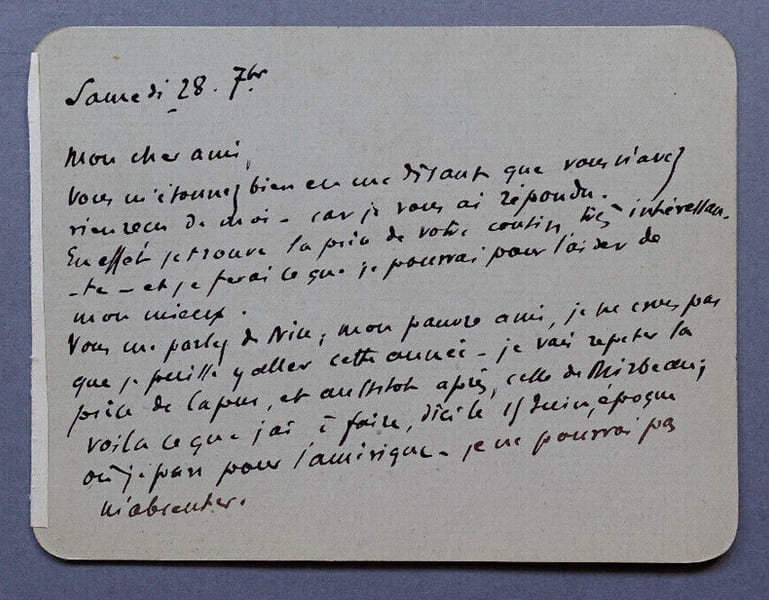 Samedi 28. 7bre
Mon cher ami,
Vous m'étonnez bien en me disant que vous n'avez
rien recu de moi - car je vous ai répondu.
En effet je trouve la pièce de votre cousin très intéressan-
-te - et je ferai ce que je pourrai pour l'aider de
mon mieux.
Vous me parlez de Nice, mon pauvre ami, je ne crois pas
que je puisse y aller cette année - je vais repeter la
pièce de Capus, et aussitot après, celle de Mirbeau;
voila ce que j'ai à faire, d'ici le 15 Juin, époque
où je pars pour l'amérique - je ne pourrai pas
m'absenter.